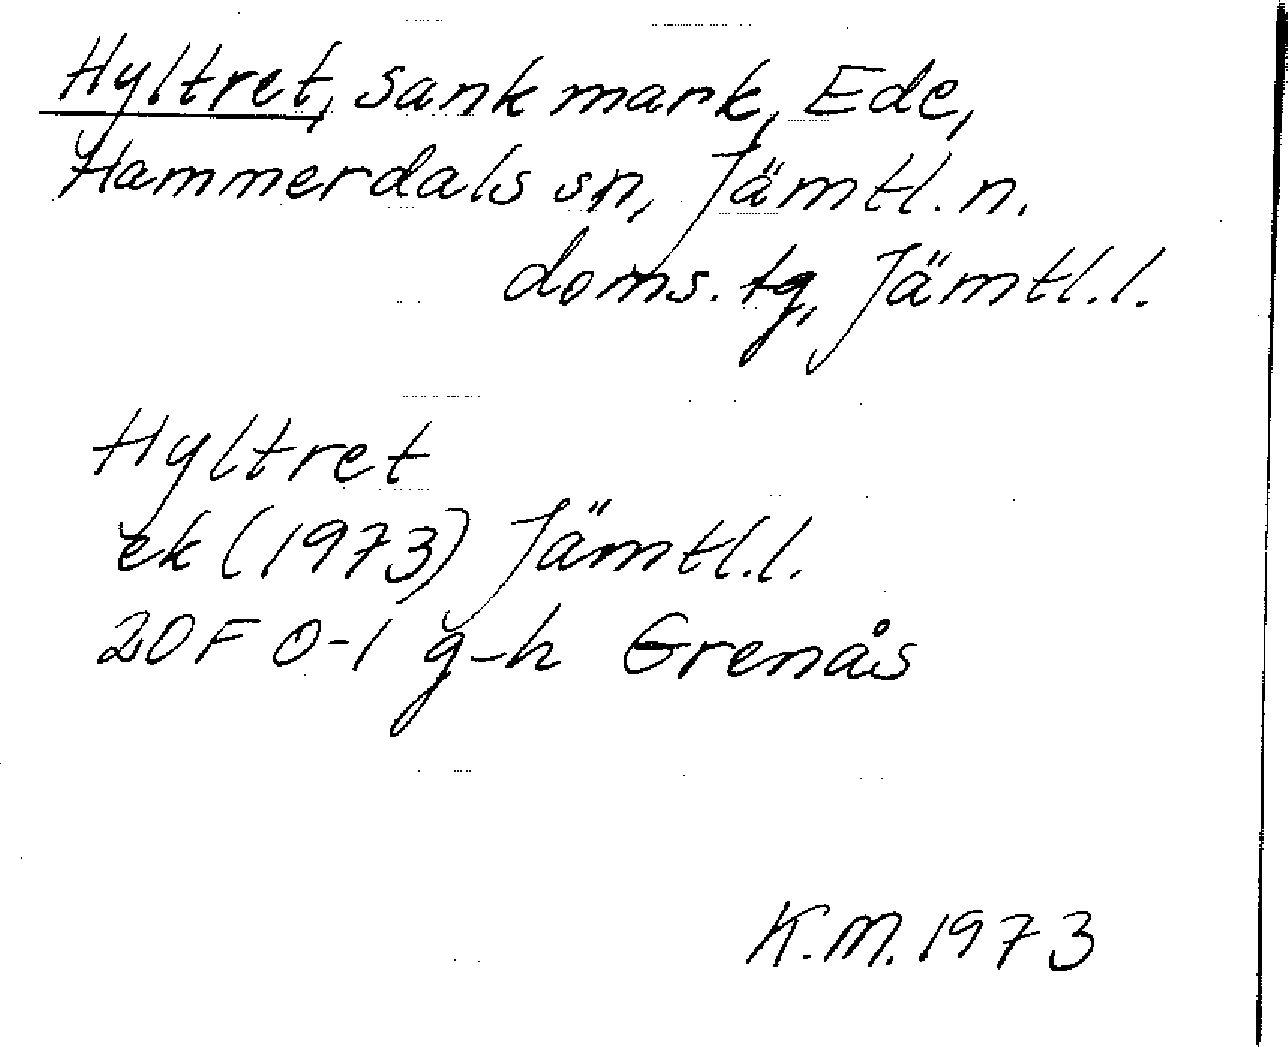 Hyltret, sankmark, Ede,
Hammerdals sn, Jämtl. n.
doms. tg, Jämtl. l.
Hyltret
ek (1973) Jämtl. l.
20F 0-1 g-h Grenås
K.M. 1973